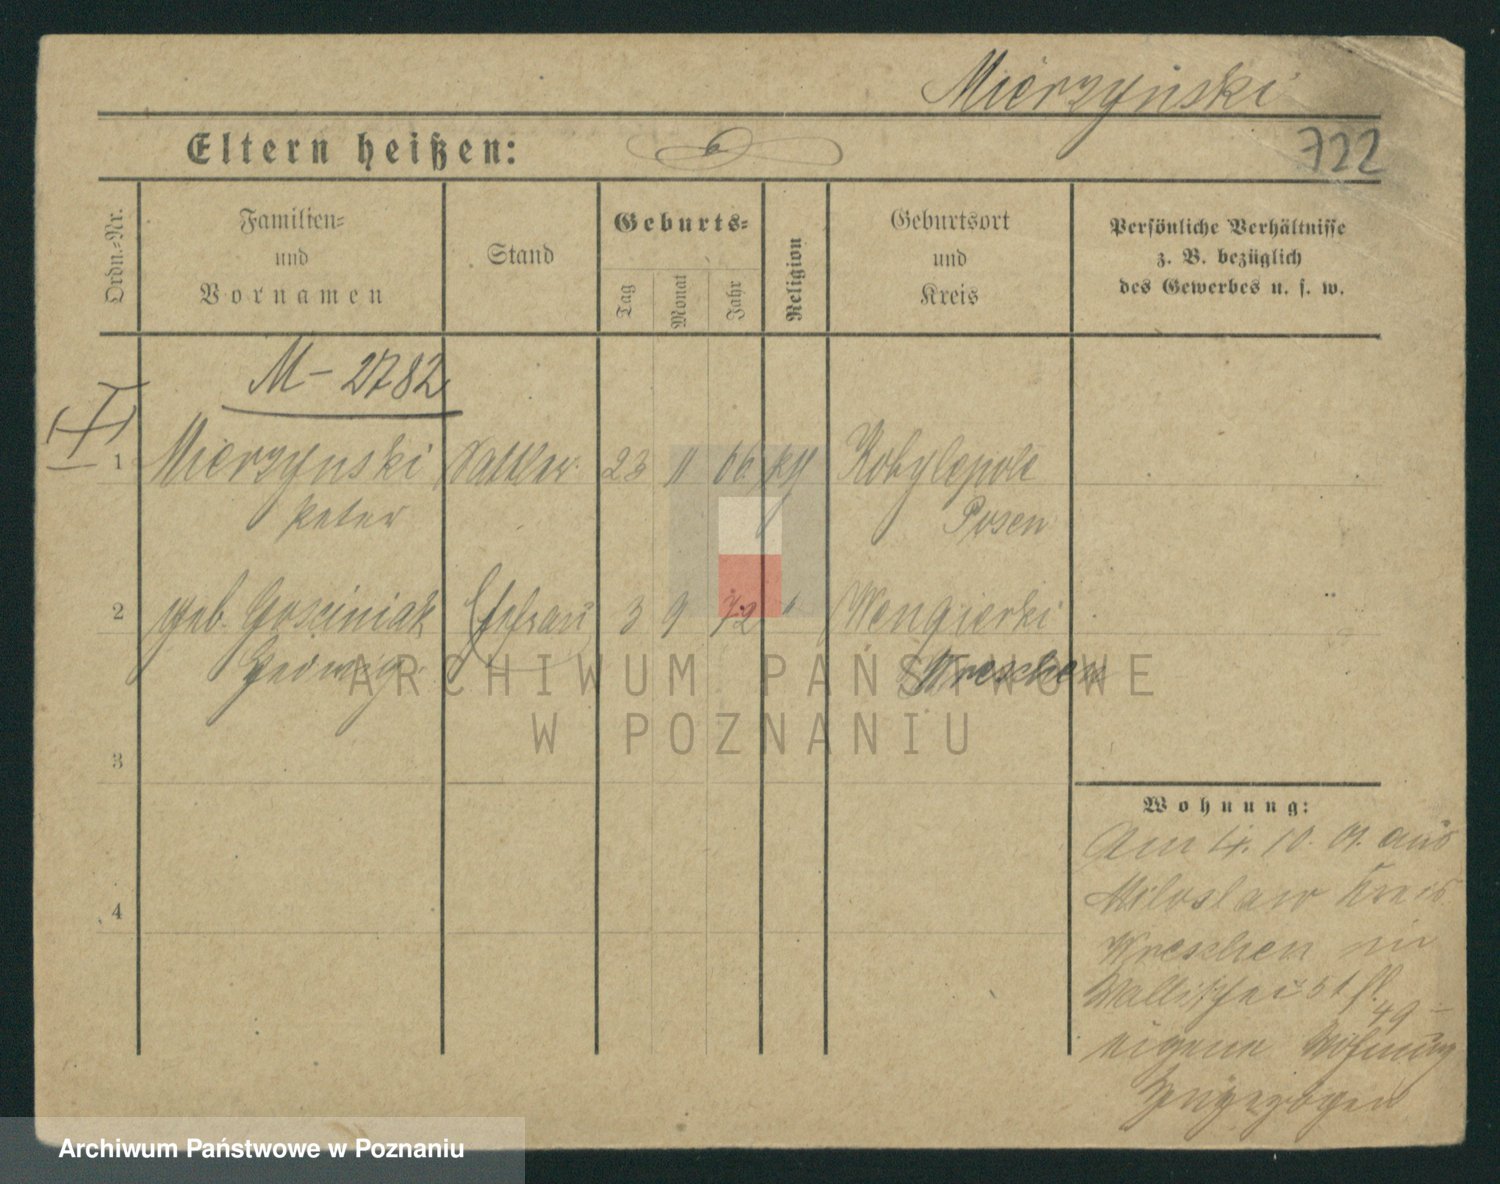 Mierzyński
Eltern heißen:
722
Ordn.=Nr.
Familien=
und
Vornamen
Stand
Geburts=
Tag
Monat
Jahr
Religion
Geburtsort
und
Kreis
Persönliche Verhältnisse
z. B. bezüglich
des Gewerbes u. s. w.
M – 2782
1 Mierzynski Sattler 23 11 66 Kobylepole
Peter Posen
2 geb. Gosciniak Ehefrau 3 9 72 " Wengierki
Hedwig Wreschen
ARCHIWUM PAŃSTWOWE
W POZNANIU
3
4
Wohnung:
Am 4. 10. 01. aus
Miloslaw Kreis
Wreschen in
Wallischei
49
eigene Wohnung
zugezogen
Archiwum Państwowe w Poznaniu